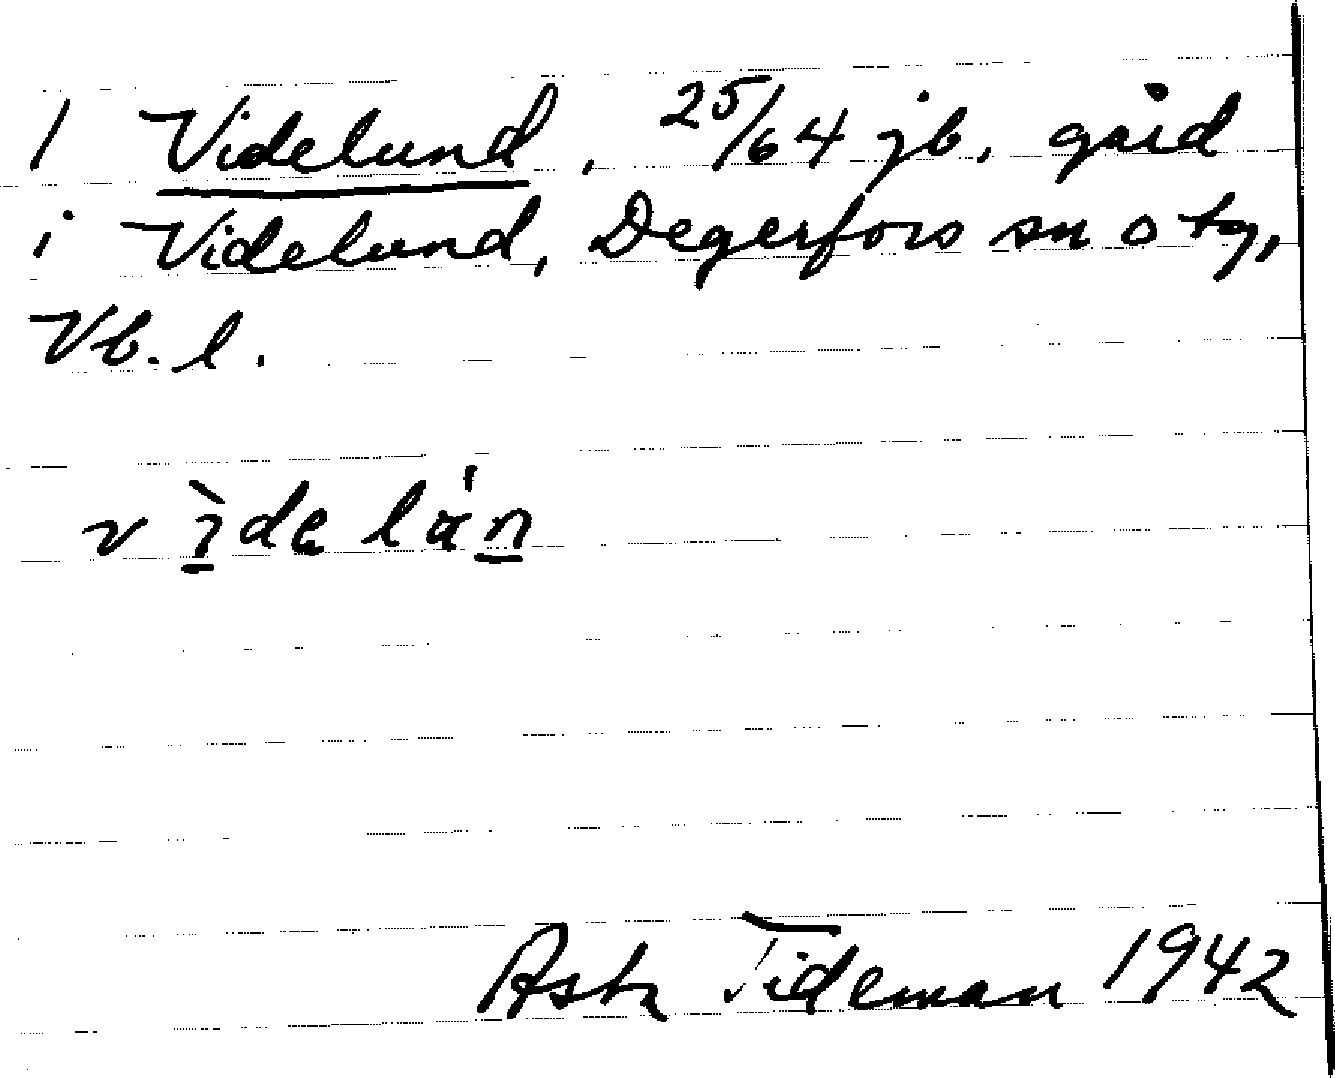 1 Videlund, 25/64 jb, gård
i Videlund, Degerfors sn o tg,
Vb. l.
Asta Tideman 1942